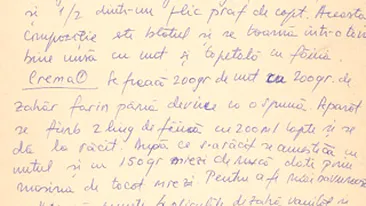 și 1/2 dintr-un plic praf de copt. Această
compoziție este blatul și se toarnă într-o tavă
bine unsă cu unt și tapetată cu făină.
Crema ① Se freacă 200gr de unt cu 200gr. de
zahăr farin până devine ca o spumă. Aparat
se fierb 2 ling de făină cu 200ml lapte și se
dă la răcit. După ce s-a răcit se amestică cu
untul și cu 150gr miezi de nucă dată prin
mașina de tocat miezi. Pentru a fi mai
punem și plicul de zahăr vanilat și